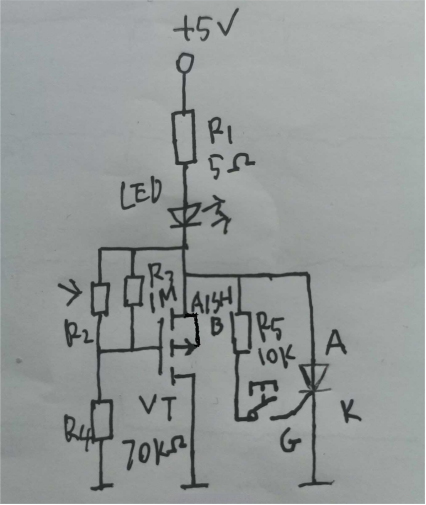 +5V
R1
5Ω
LED
R3
1M
R2
A1SH
B
R5
10K
A
VT
R4
70KΩ
K
G